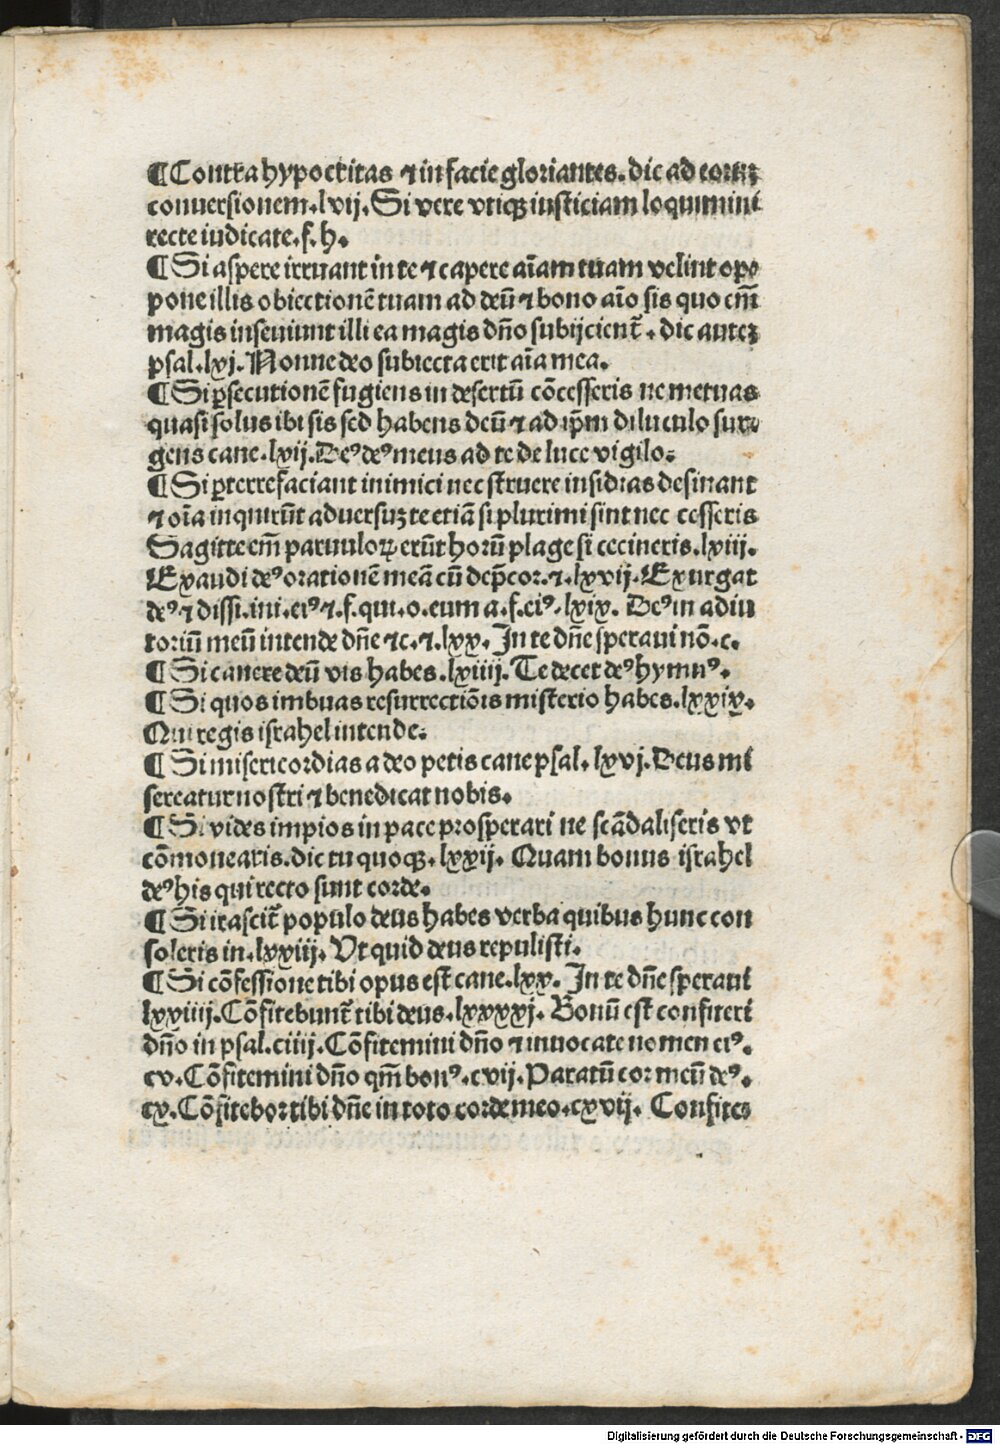 ¶Contra hypocritas ⁊ in facie gloriantes. dic ad eoruꝫ
conuersionem. lvij. Si vere vtiqꝫ iusticiam loquimini
recte iudicate. f. h.
¶Si aspere irruant in te ⁊ capere aīam tuam velint opo
pone illis obiectionē tuam ad deū ⁊ bono aīo sis quo em̄
magis inseuiunt illi ea magis dn̄o subijcient̄. dic auteꝫ
psal. lxj. Nonne deo subiecta erit aīa mea.
¶Si ꝑsecutionē fugiens in desertū cōcesseris ne metuas
quasi solus ibi sis sed habens deū ⁊ ad ip̄m diluculo sur⸗
gens cane. lxij. Deꝰ deꝰ meus ad te de luce vigilo.
¶Si ꝑterrefaciant inimici nec struere insidias desinant
⁊ oīa inquirūt aduersuꝫ te etiā si plurimi sint nec cesseris
Sagitte em̄ paruuloꝝ erūt horū plage si cecineris. lxiij.
Exaudi deꝰ orationē meā cū dep̄cor. ⁊. lxvij. Exurgat
deꝰ ⁊ dissi. ini. eiꝰ ⁊. f. qui. o. eum a. f. eiꝰ. lxix. Deꝰ in adiu
toriū meū intende dn̄e ⁊c. ⁊. lxx. In te dn̄e speraui nō. c.
¶Si canere deū vis habes. lxiiij. Te decet deꝰ hymnꝰ.
¶Si quos imbuas resurrectiōis misterio habes. lxxix.
Qui regis israhel intende.
¶Si misericordias a deo petis cane psal. lxvj. Deus mi
sereatur nostri ⁊ benedicat nobis.
¶Si vides impios in pace prosperari ne scādaliseris vt
cōmonearis. dic tu quoqꝫ. lxxij. Quam bonus israhel
deꝰ his qui recto sunt corde.
¶Si irascit̄ populo deus habes verba quibus hunc con
soleris in. lxxiij. Vt quid deus repulisti.
¶Si cōfessione tibi opus est cane. lxx. In te dn̄e speraui
lxxiiij. Cōfitebunt̄ tibi deus. lxxxxj. Bonū est confiteri
dn̄o in psal. ciiij. Cōfitemini dn̄o ⁊ inuocate nomen eiꝰ.
cv. Cōfitemini dn̄o qm̄ bonꝰ. cvij. Paratū cor meū deꝰ.
cx. Cōfitebor tibi dn̄e in toto corde meo. cxvij. Confite⸗
Digitalisierung gefördert durch die Deutsche Forschungsgemeinschaft - DFG